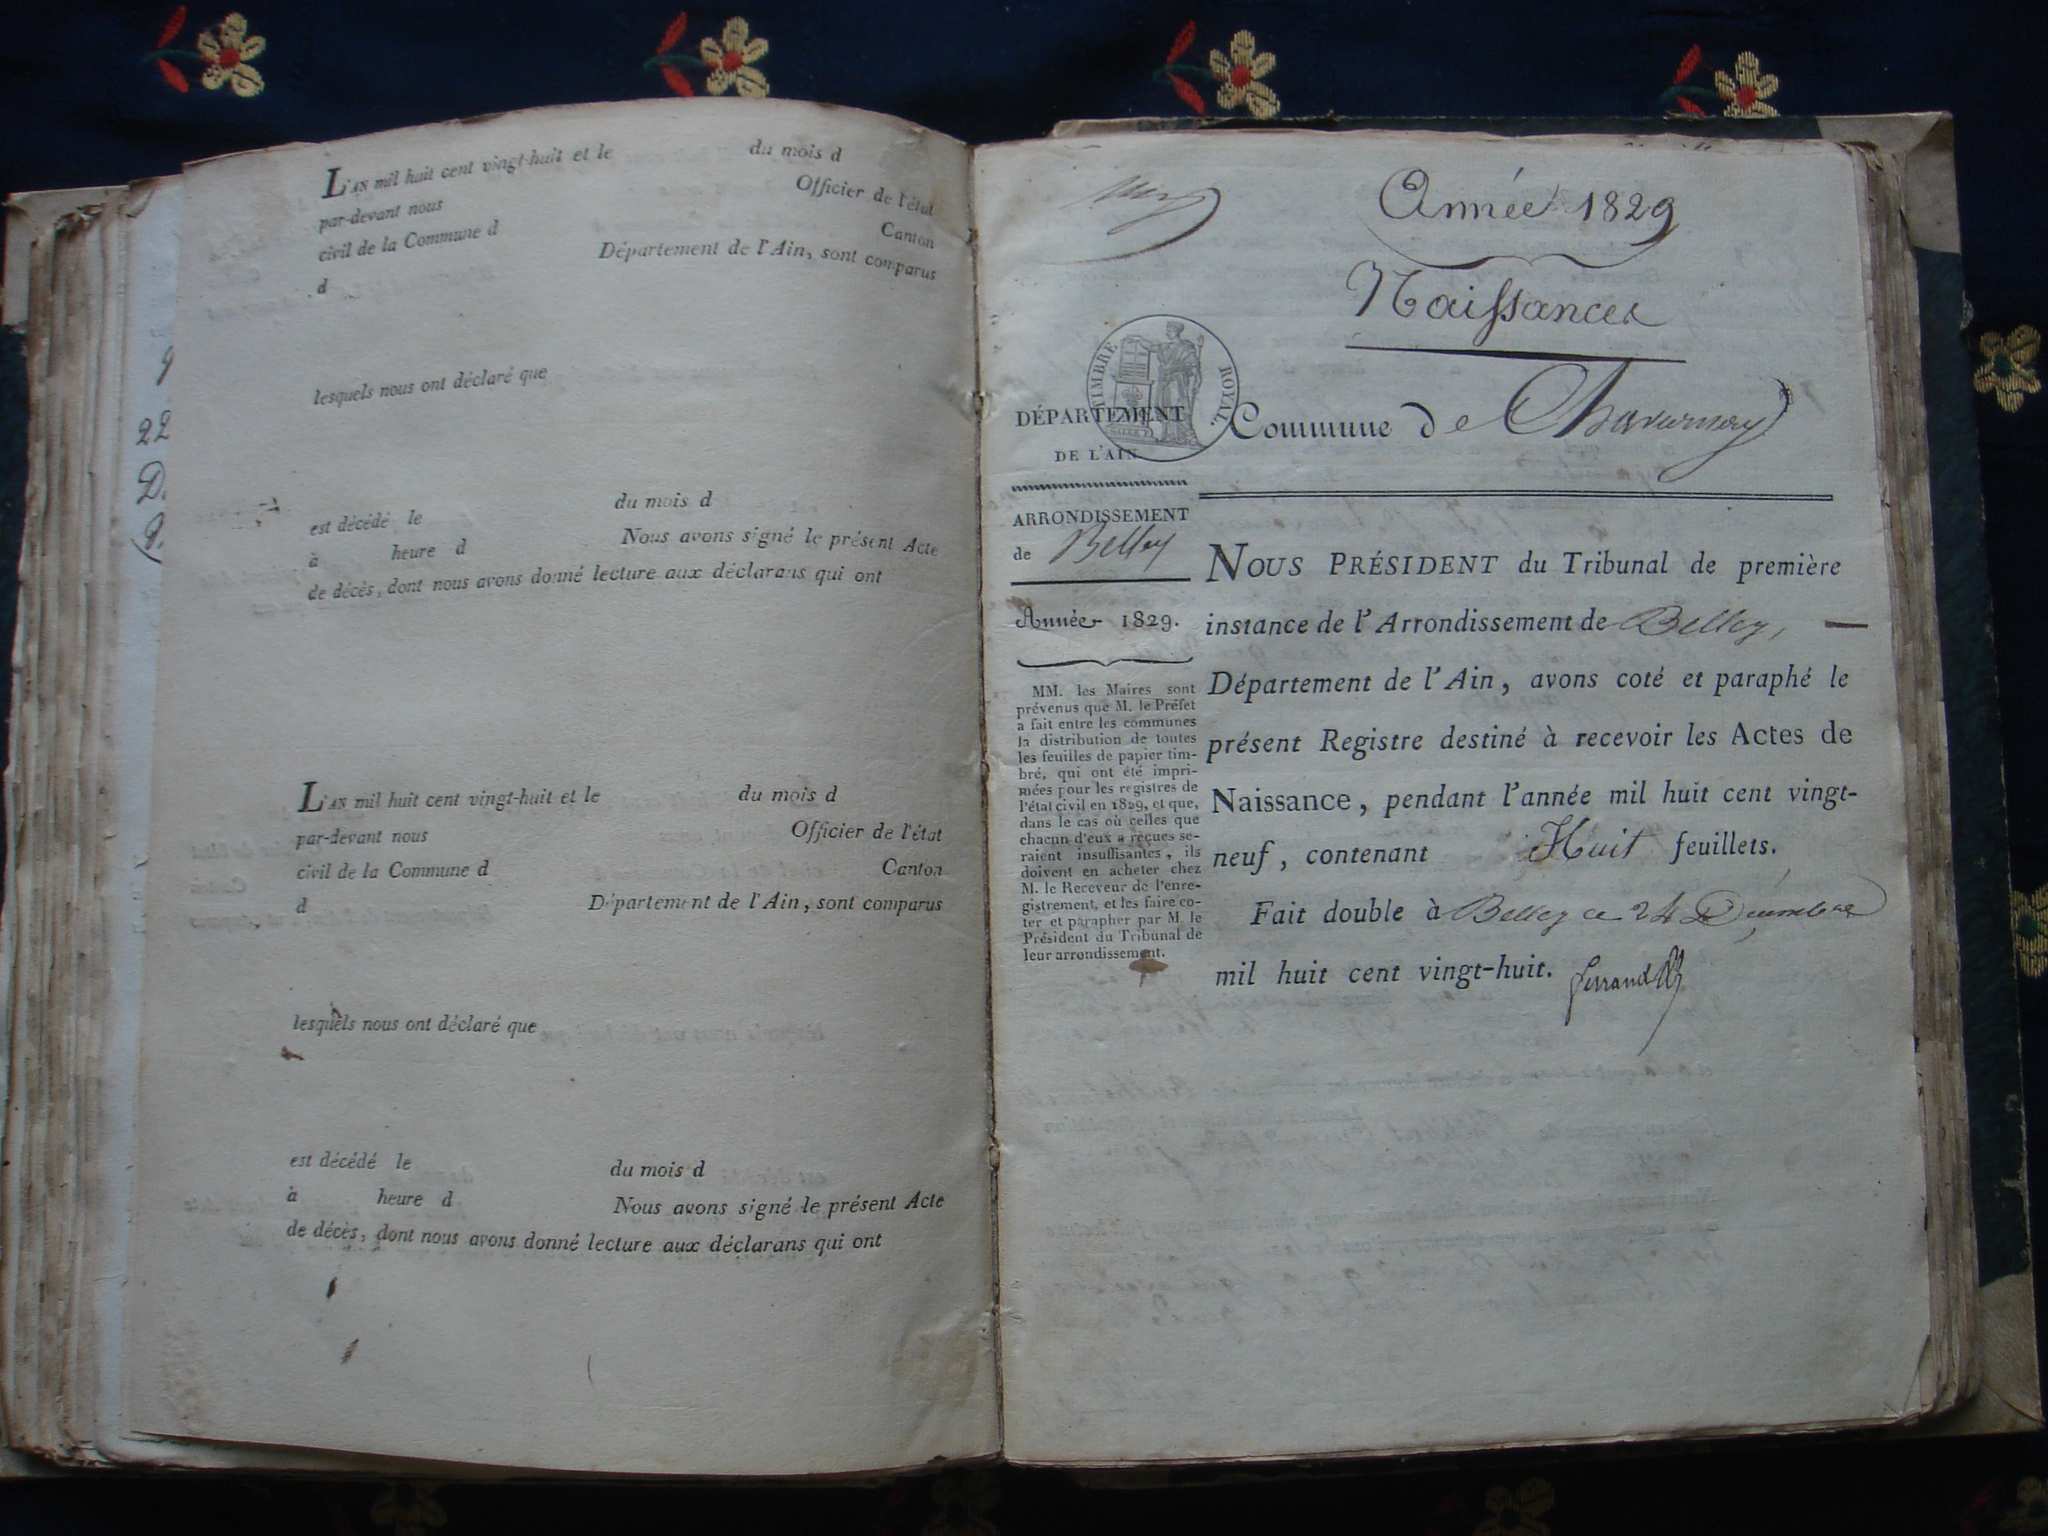 L'AN mil huit cent vingt-huit et le du mois d
par-devant nous Officier de l'état
civil de la Commune d Canton
d Département de l'Ain, sont comparus
lesquels nous ont déclaré que
est décédé le du mois d
à heure d Nous avons signé le présent Acte
de décès, dont nous avons donné lecture aux déclarans qui ont
L'AN mil huit cent vingt-huit et le du mois d
par-devant nous Officier de l'état
civil de la Commune d Canton
d Département de l'Ain, sont comparus
lesquels nous ont déclaré que
est décédé le du mois d
à heure d Nous avons signé le présent Acte
de décès, dont nous avons donné lecture aux déclarans qui ont
22
D.
Année 1829
Naissances
TIMBRE ROYAL.
DÉPARTEMENT
DE L'AIN
Commune de Chavornay
ARRONDISSEMENT
de Belley
Année 1829.
MM. les Maires sont
prévenus que M. le Préfet
a fait entre les communes
la distribution de toutes
les feuilles de papier tim-
bré, qui ont été impri-
mées pour les registres de
l'état civil en 1829, et que,
dans le cas où celles que
chacun d'eux a reçues se-
raient insuffisantes, ils
doivent en acheter chez
M. le Receveur de l'enre-
gistrement, et les faire co-
ter et parapher par M. le
Président du Tribunal de
leur arrondissement.
NOUS PRÉSIDENT du Tribunal de première
instance de l'Arrondissement de Belley,
Département de l'Ain, avons coté et paraphé le
présent Registre destiné à recevoir les Actes de
Naissance, pendant l'année mil huit cent vingt-
neuf, contenant Huit feuillets.
Fait double à Belley ce 24 Décembre
mil huit cent vingt-huit.